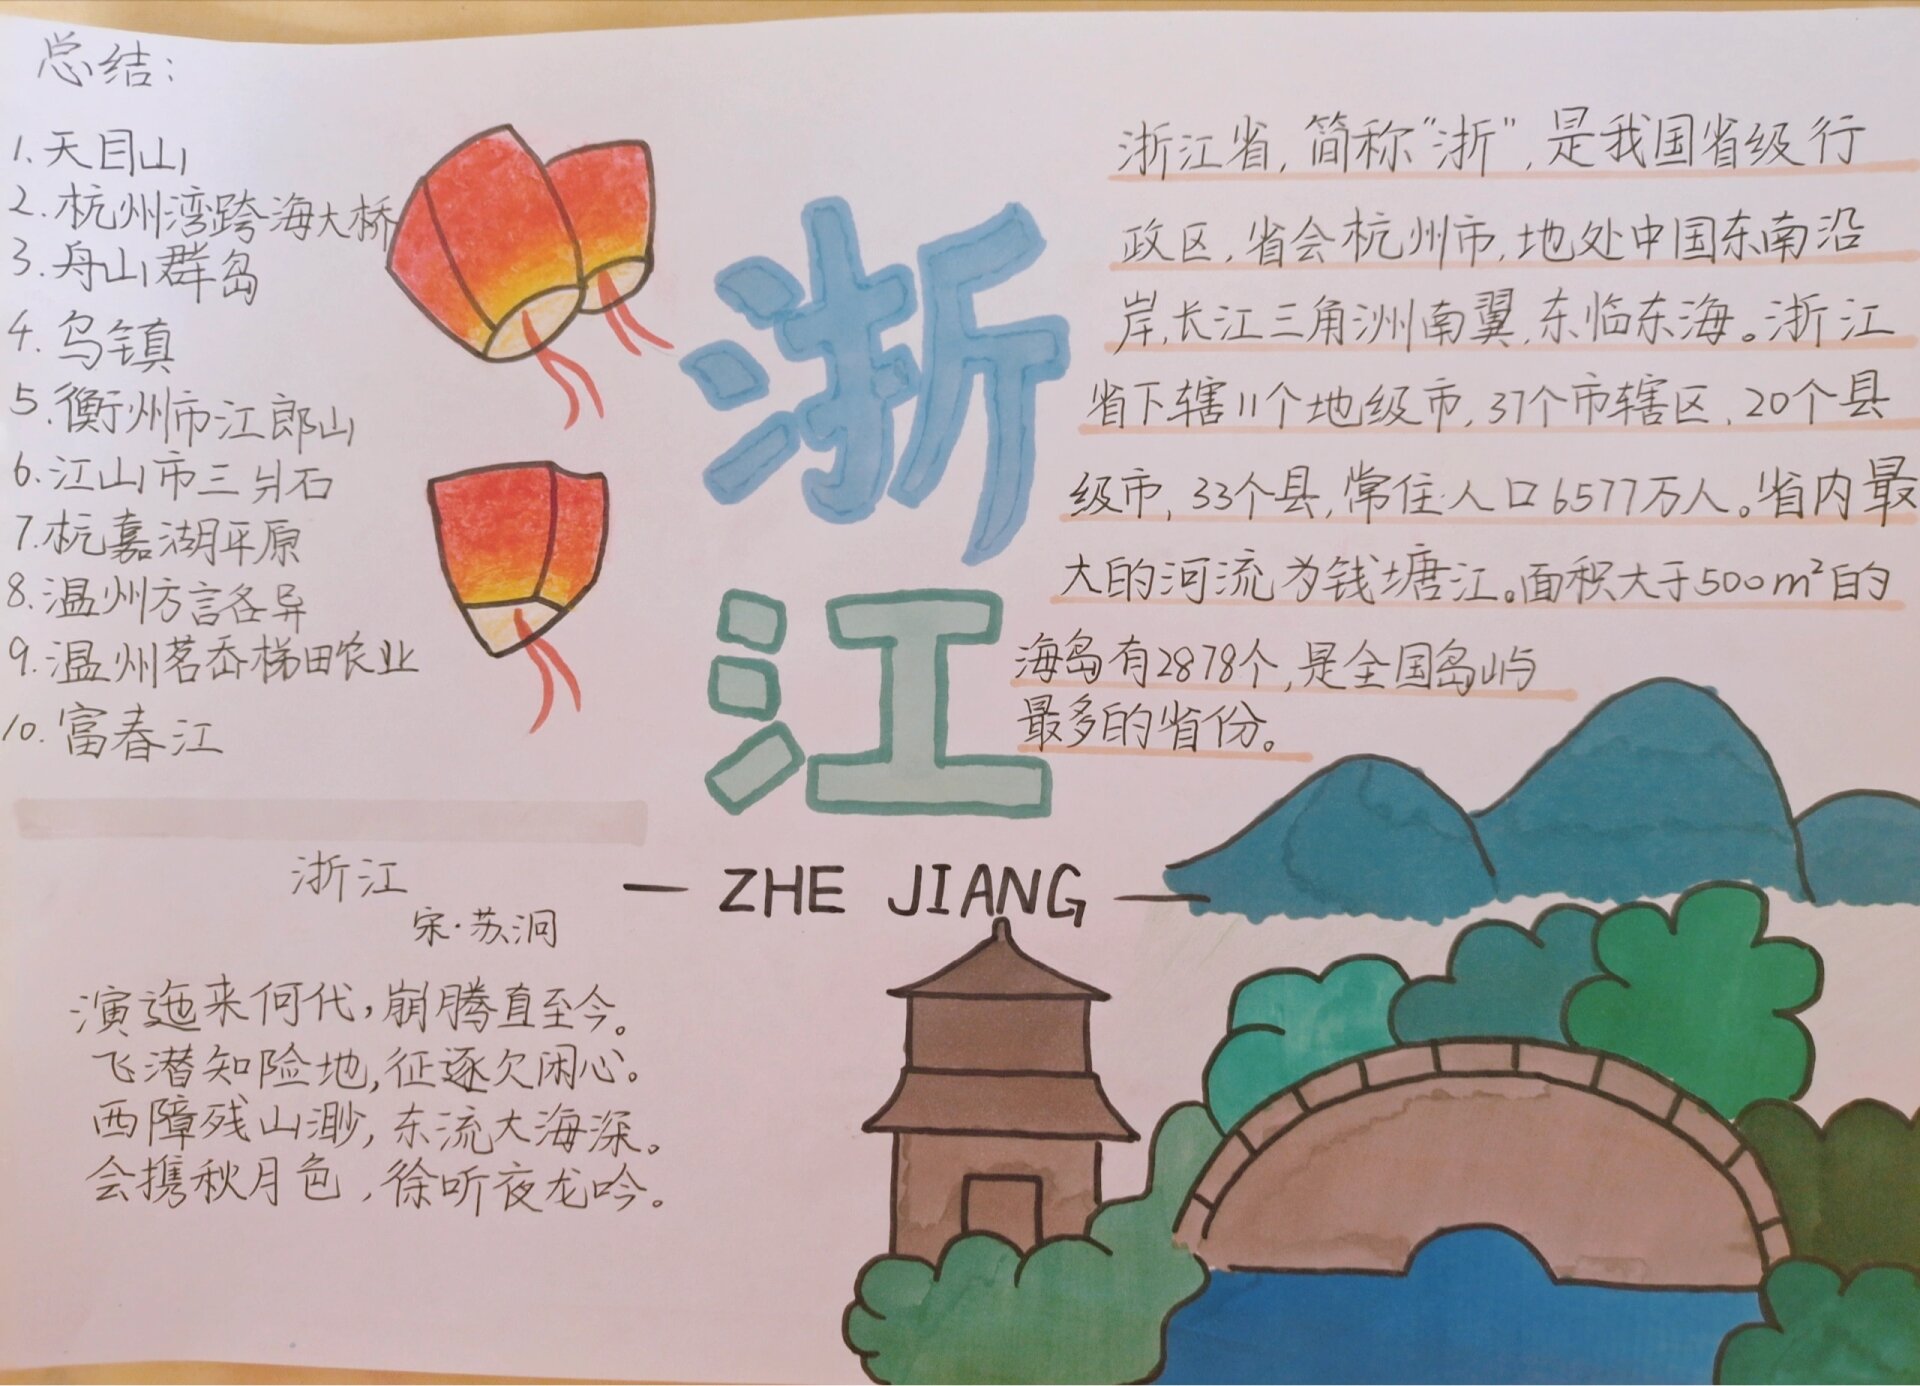 总结:
1.天目山
2.杭州湾跨海大桥
3.舟山群岛
4.乌镇
5.衡州市江郎山
6.江山市三爿石
7.杭嘉湖平原
8.温州方言各异
9.温州茗岙梯田农业
10.富春江
浙江
宋·苏泂
演迤来何代,崩腾直至今。
飞潜知险地,征逐欠闲心。
西障残山渺,东流大海深。
会携秋月色,徐听夜龙吟。
浙
江
— ZHE JIANG —
浙江省,简称"浙",是我国省级行
政区,省会杭州市,地处中国东南沿
岸,长江三角洲南翼,东临东海。浙江
省下辖11个地级市,37个市辖区,20个县
级市,33个县,常住人口6577万人。省内最
大的河流为钱塘江。面积大于500m²的
海岛有2878个,是全国岛屿
最多的省份。